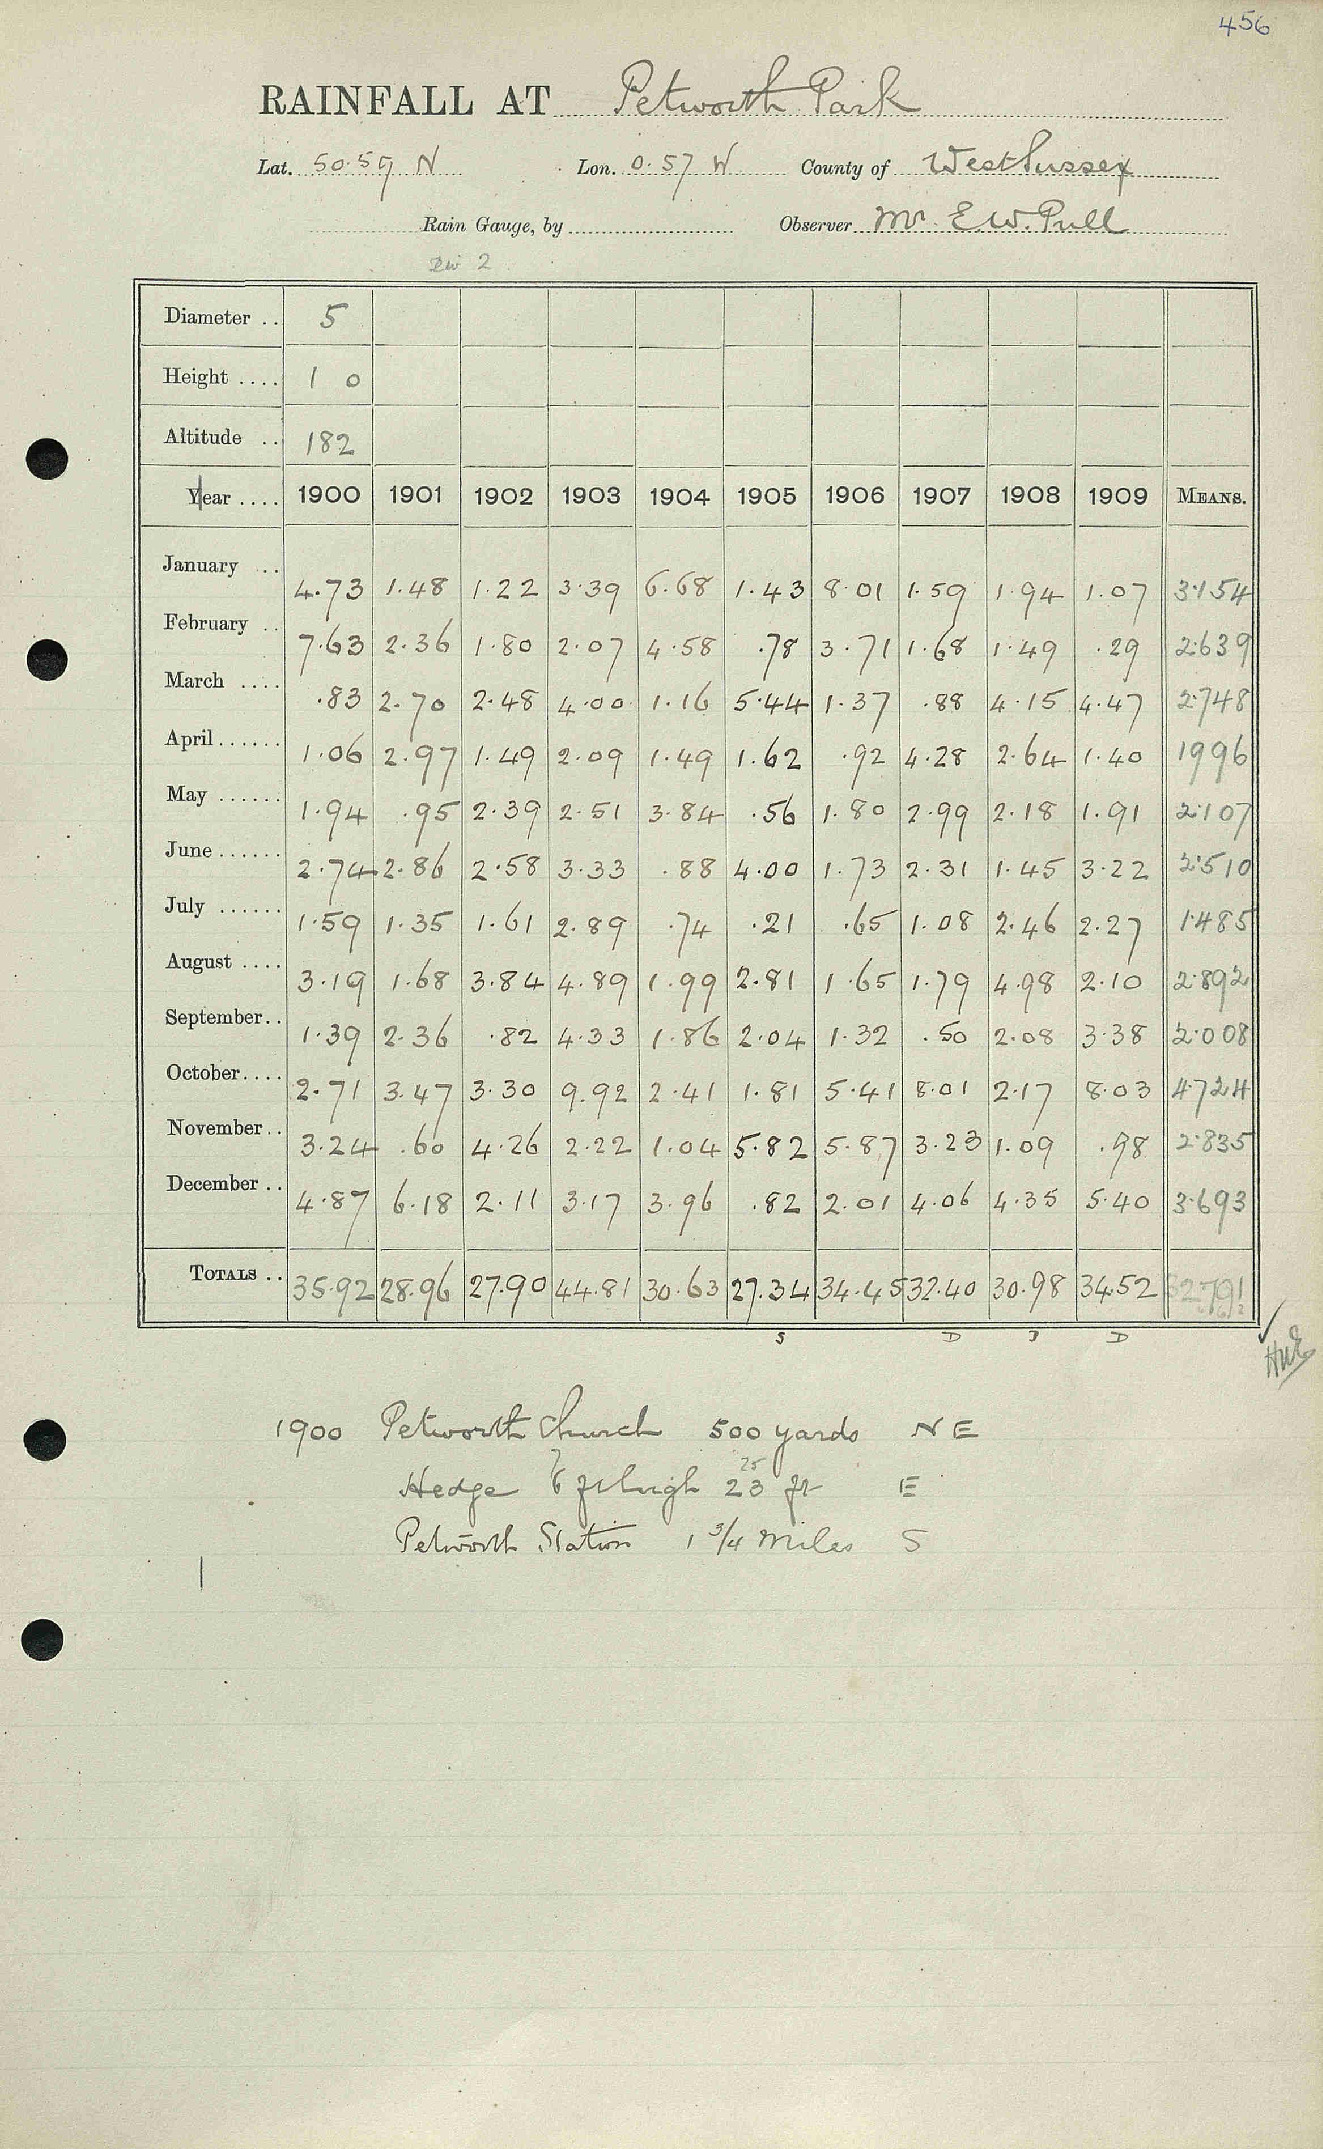 456
RAINFALL AT Petworth Park
Lat. 50.59 N Lon. 0.57 W County of West Sussex
Rain Gauge, by Observer Mr. E.W. Pull
Div 2
Diameter .. 5
Height .... 1 0
Altitude .. 182
Year .... 1900 1901 1902 1903 1904 1905 1906 1907 1908 1909 MEANS.
January .. 4.73 1.48 1.22 3.39 6.68 1.43 8.01 1.59 1.94 1.07 3.154
February .. 7.63 2.36 1.80 2.07 4.58 .78 3.71 1.68 1.49 .29 2.639
March .... .83 2.70 2.48 4.00 1.16 5.44 1.37 .88 4.15 4.47 2.748
April ...... 1.06 2.97 1.49 2.09 1.49 1.62 .92 4.28 2.64 1.40 1996
May ...... 1.94 .95 2.39 2.51 3.84 .56 1.80 2.99 2.18 1.91 2.107
June ...... 2.74 2.86 2.58 3.33 .88 4.00 1.73 2.31 1.45 3.22 2.510
July ...... 1.59 1.35 1.61 2.89 .74 .21 .65 1.08 2.46 2.27 1.485
August .... 3.19 1.68 3.84 4.89 1.99 2.81 1.65 1.79 4.98 2.10 2.892
September.. 1.39 2.36 .82 4.33 1.86 2.04 1.32 .50 2.08 3.38 2.008
October.... 2.71 3.47 3.30 9.92 2.41 1.81 5.41 8.01 2.17 8.03 4.724
November.. 3.24 .60 4.26 2.22 1.04 5.82 5.87 3.23 1.09 .98 2.835
December .. 4.87 6.18 2.11 3.17 3.96 .82 2.01 4.06 4.35 5.40 3.693
TOTALS .. 35.92 28.96 27.90 44.81 30.63 27.34 34.45 32.40 30.98 34.52 32.791
S D D
1900 Petworth Church 500 yards N E
Hedge 6 ft high 23 ft E
Petworth Station 1 3/4 miles S